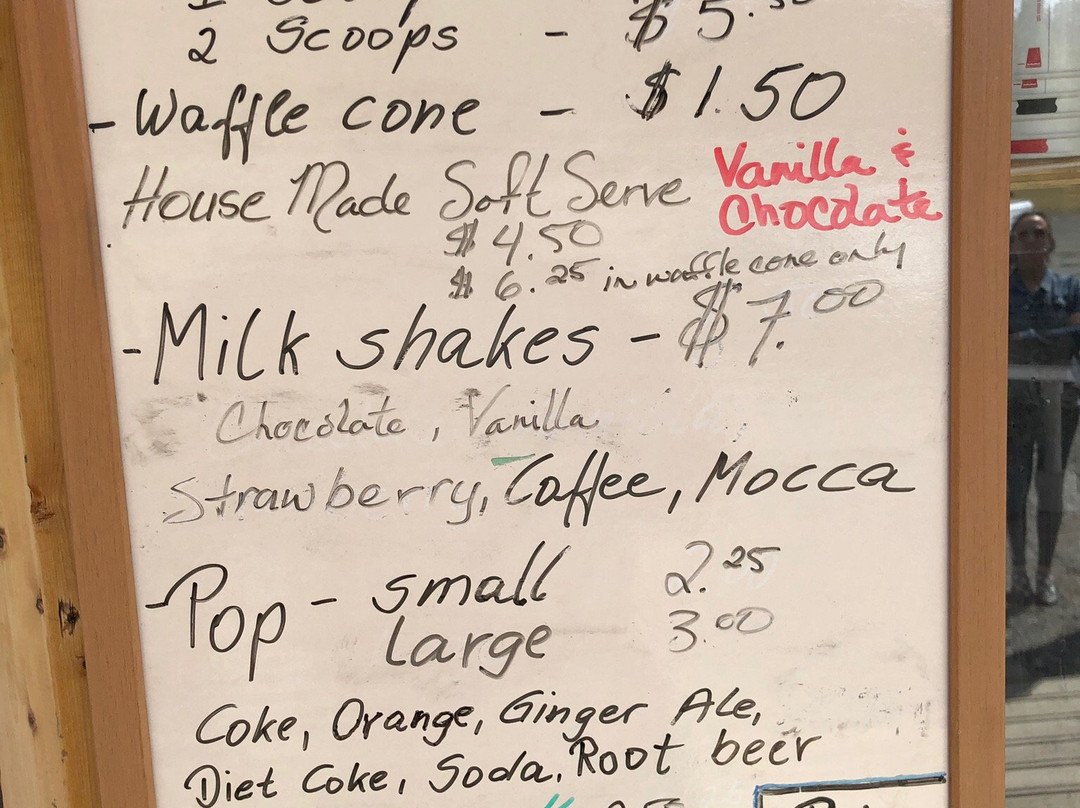 2 Scoops - $5.50
- Waffle cone - $1.50
House Made Soft Serve Vanilla & Chocolate
$4.50
$6.25 in waffle cone only
- Milk shakes - $7.00
Chocolate, Vanilla
Strawberry, Coffee, Mocca
- Pop - small 2.25
Large 3.00
Coke, Orange, Ginger Ale,
Diet Coke, Soda, Root beer